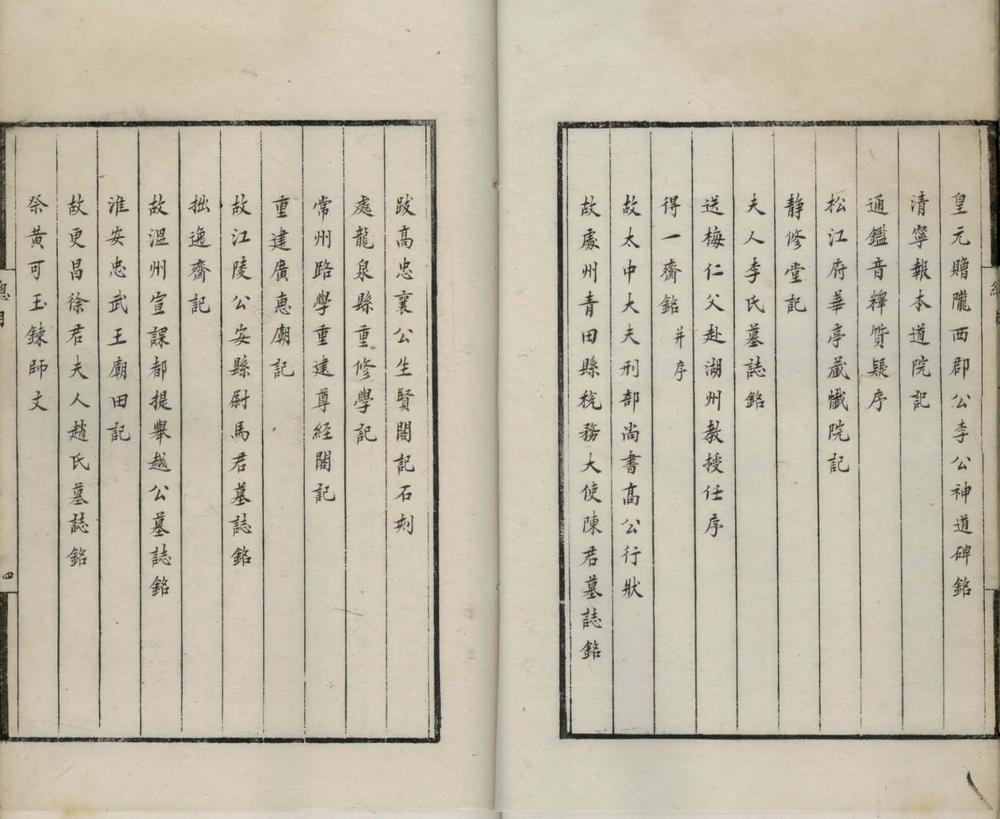 皇元贈隴西郡公李公神道碑銘
清寧報本道院記
通鑑音釋質疑序
松江府華亭藏懺院記
静修堂記
夫人李氏墓誌銘
送梅仁父赴湖州教授任序
得一齋銘并序
故太中大夫刑部尚書高公行狀
故處州青田縣稅務大使陳君墓誌銘
跋高忠襄公生賢閣記石刻
處龍泉縣重修學記
常州路學重建尊經閣記
重建廣惠廟記
故江陵公安縣尉馬君墓誌銘
拙逸齋記
故温州宣課都提舉越公墓誌銘
淮安忠武王廟田記
故更昌徐君夫人趙氏墓誌銘
祭黄可玉鍊師文
四